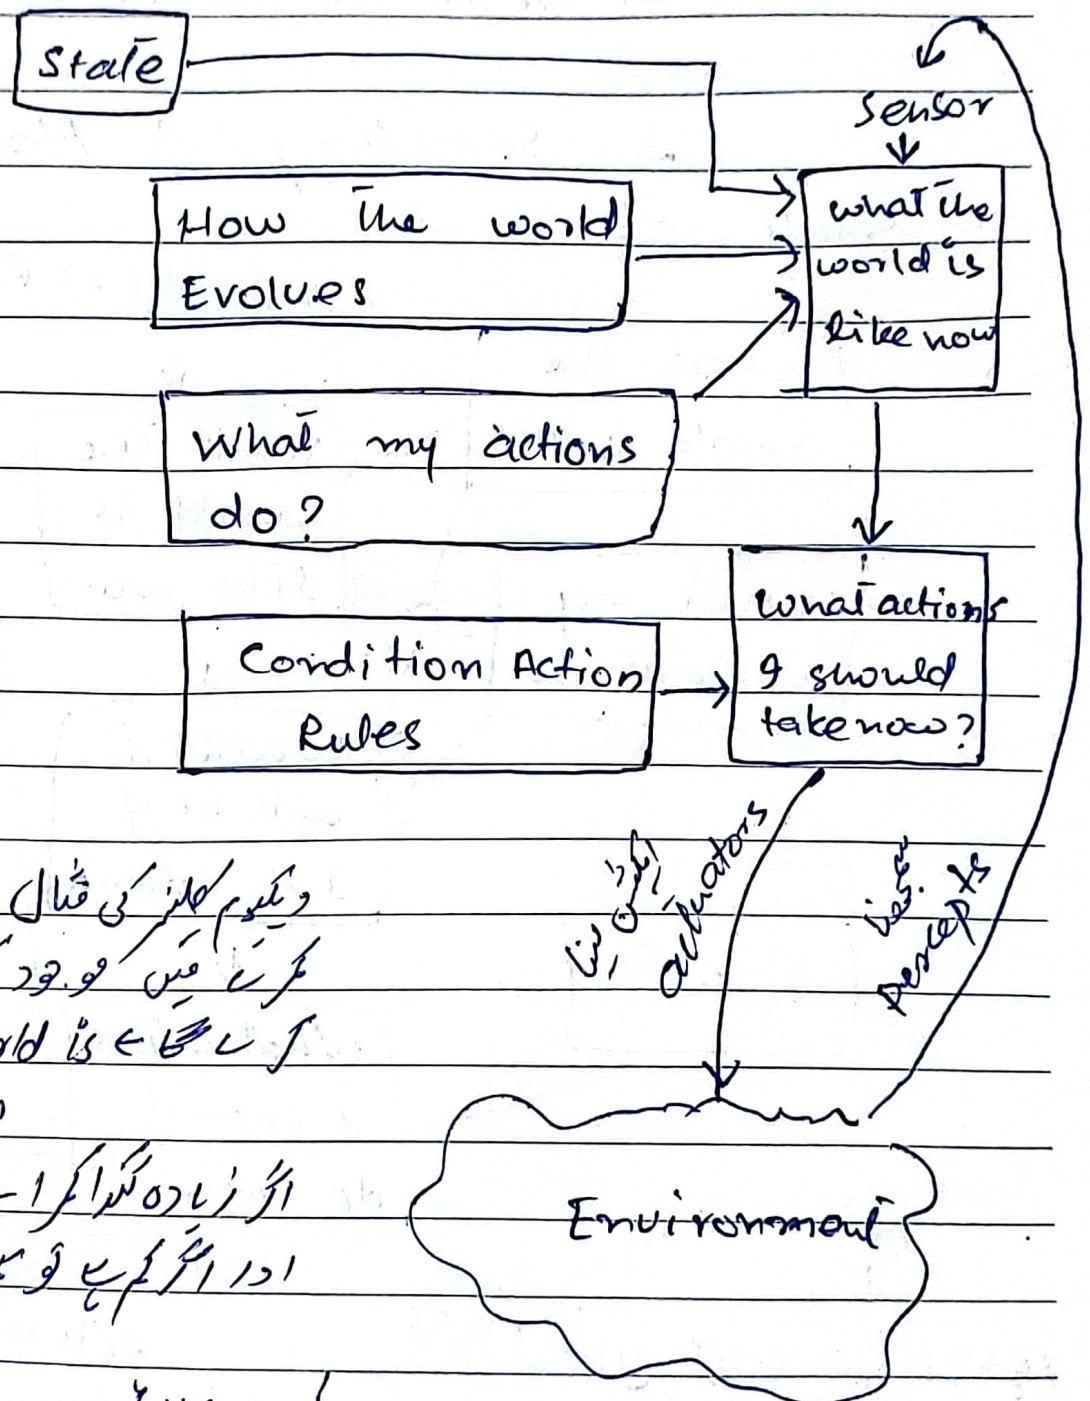 State
Sensor
How the world
Evolves
what the
world is
like now
What my actions
do?
what actions
I should
take now?
Condition Action
Rules
ایکشن لینا
actuators
percepts
ویکیوم کلینر کی مثال
کرے گا → rld is
Environment
اگر زیادہ گندا کمرا
اور اگر کم ہے تو